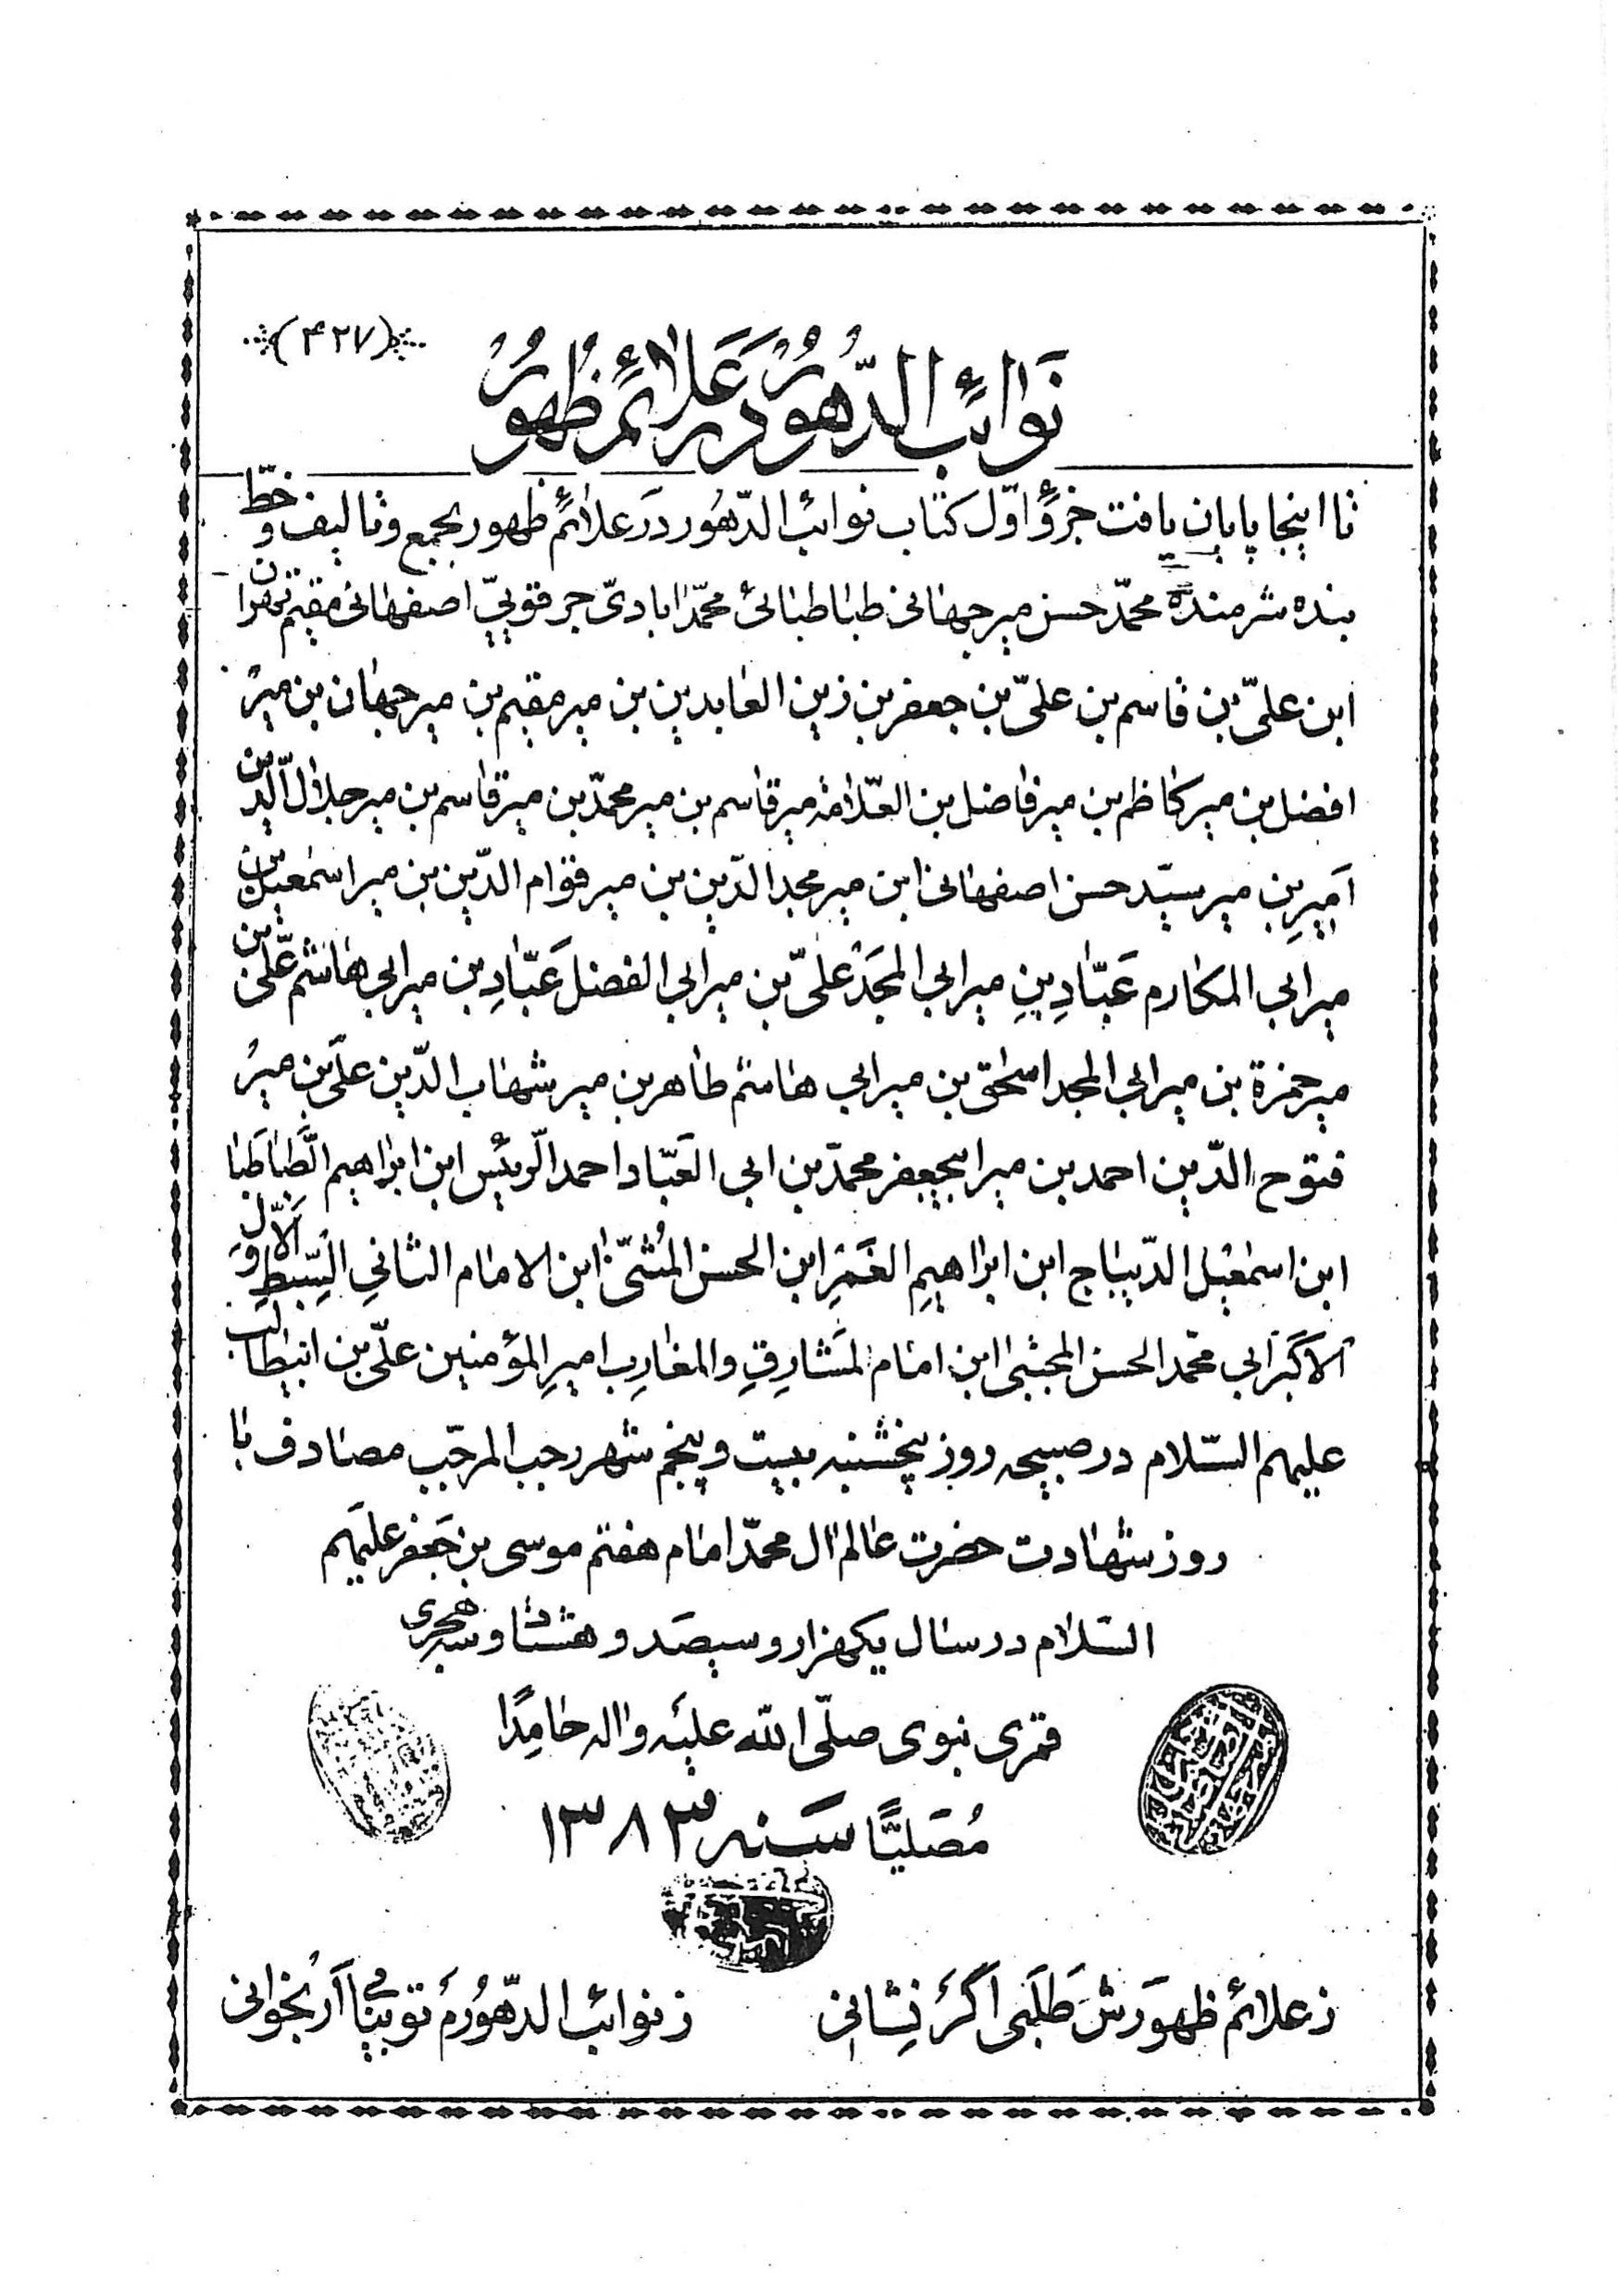 (۴۲۷)
نَوائِبُ الدُّهُورُ دَرْ عَلائِمُ ظُهُورُ
تا اینجا پایان یافت جزؤ اوّل کتاب نوائب الدّهُور دَر علائم ظهور بجمع و تالیف و خطّ
بنده شرمنده محمّد حسن میرجهانی طباطبائی محمّدابادیّ جرقویيّ اصفهانی مقیم تهران
ابن علیّ بن قاسم بن علیّ بن جعفر بن زین العابدین بن میر مقیم بن میرجهان بن میر
افضل بن میر کاظم بن میر فاضل بن العّلامه میر قاسم بن میر محمّد بن میر قاسم بن میر جلال الّدین
اَمیرِ بن میر سیّد حسن اصفهانی ابن میر مجد الدّین بن میر قوام الدّین بن میر اسمعیل بن
میر ابی المکارم عَبّادِ بنِ میر ابی المَجدْ علیّ بن میر ابی الفضل عَبّادِ بن میر ابی هاشم علّی بن
میر حمزة بن میر ابی المجد اسحٰق بن میر ابی هاشم طاهر بن میر شهاب الدّین علیّ بن میرُ
فتوح الدّین احمد بن میر ابیجعفر محمّد بن ابی العَبّاد احمد الرّئیس ابن ابراهیم الطَّباطَبا
ابن اسمٰعیل الدّیباج ابن ابراهیمِ الغَمَرِ ابن الحسن المُثنّیٰ ابن الامام الثانیِ السِّبطِ الاَوَّل
اَلاکبَر ابی محّمد الحسن المجتبیٰ ابن امام المَشارِقِ والمغارِب امیرِ المؤمنین علّی بن ابیطالب
علیهم السّلام در صبیحه روز پنجشنبه بیست و پنجم شهر رجب المرجّب مصادف با
روز شهادت حضرت عالم ال محمّد امام هفتم موسی بن جَعفر علیَهم
السّلام در سال یکهزار و سیصَد و هشتاد و سه هجری
قمری نبوی صلّی الله علیَه واله حامِدًا
مُصَلیًّا سَنه ۱۳۸۳
ز علائم ظهورَش طَلَبی اگَر نِشانی
ز نوائب الدّهوُرمُ تو بیا و اَر بُخوانی